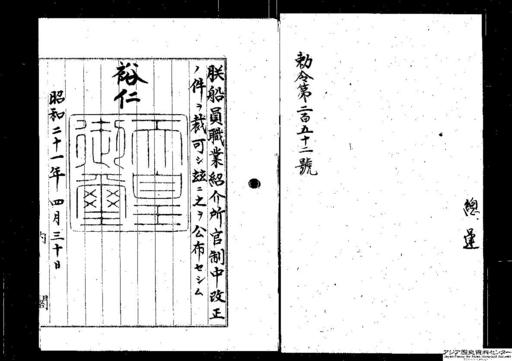 勅令第二百五十二號
總運
朕船員職業紹介所官制中改正
ノ件ヲ裁可シ玆ニ之ヲ公布セシム
裕仁
天皇御璽
昭和二十一年四月三十日
内閣
アジア歴史資料センター